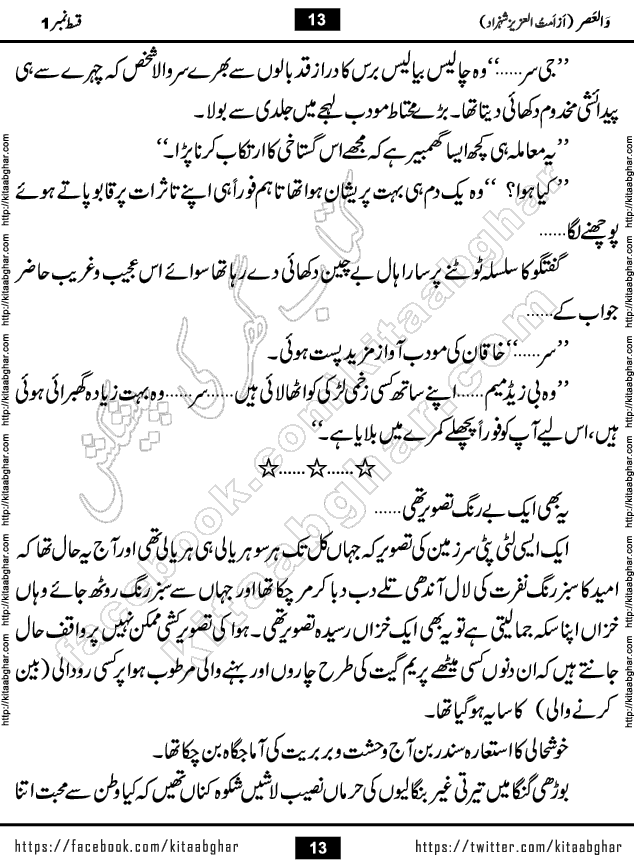 والعصر (از امت العزیز شہزاد)
13
قسط نمبر 1
”جی سر......“ وہ چالیس بیالیس برس کا دراز قد بالوں سے بھرے سر والا شخص کہ چہرے سے ہی
پیدائشی مخدوم دکھائی دیتا تھا۔ بڑے محتاط مودب لہجے میں جلدی سے بولا۔
”یہ معاملہ ہی کچھ ایسا گھمبیر ہے کہ مجھے اس گستاخی کا ارتکاب کرنا پڑا۔“
”کیا ہوا؟ “ وہ یک دم ہی بہت پریشان ہوا تھا تاہم فوراً ہی اپنے تاثرات پر قابو پاتے ہوئے
پوچھنے لگا......
گفتگو کا سلسلہ ٹوٹنے پر سارا ہال بے چین دکھائی دے رہا تھا سوائے اس عجیب و غریب حاضر
جواب کے......
”سر......“ خاقان کی مودب آواز مزید پست ہوئی۔
”وہ بی زیڈ میم...... اپنے ساتھ کسی زخمی لڑکی کو اٹھا لائی ہیں...... سر...... وہ بہت زیادہ گھبرائی ہوئی
ہیں، اس لیے آپ کو فوراً پچھلے کمرے میں بلایا ہے۔“
☆......☆......☆
یہ بھی ایک بے رنگ تصویر تھی......
ایک ایسی لٹی پٹی سرزمین کی تصویر کہ جہاں کل تک ہر سو ہریالی ہی ہریالی تھی اور آج یہ حال تھا کہ
امید کا سبز رنگ نفرت کی لال آندھی تلے دب دبا کر مر چکا تھا اور جہاں سے سبز رنگ روٹھ جائے وہاں
خزاں اپنا سکہ جما لیتی ہے تو یہ بھی ایک خزاں رسیدہ تصویر تھی۔ ہوا کی تصویر کشی ممکن نہیں پر واقف حال
جانتے ہیں کہ ان دنوں کسی میٹھے پریم گیت کی طرح چاروں اور بہنے والی مرطوب ہوا پر کسی رودالی (بین
کرنے والی) کا سایہ ہو گیا تھا۔
خوشحالی کا استعارہ سندر بن آج وحشت و بربریت کی آماجگاہ بن چکا تھا۔
بوڑھی گنگا میں تیرتی غیر بنگالیوں کی حرماں نصیب لاشیں شکوہ کناں تھیں کہ کیا وطن سے محبت اتنا
https://facebook.com/kitaabghar
13
https://twitter.com/kitaabghar
http://kitaabghar.com http://kitaabghar.com http://kitaabghar.com http://kitaabghar.com http://kitaabghar.com http://kitaabghar.com
http://kitaabghar.com http://kitaabghar.com http://kitaabghar.com http://kitaabghar.com http://kitaabghar.com http://kitaabghar.com
کتاب گھر کی پیشکش
facebook.com/kitaabghar
kitaabghar.com